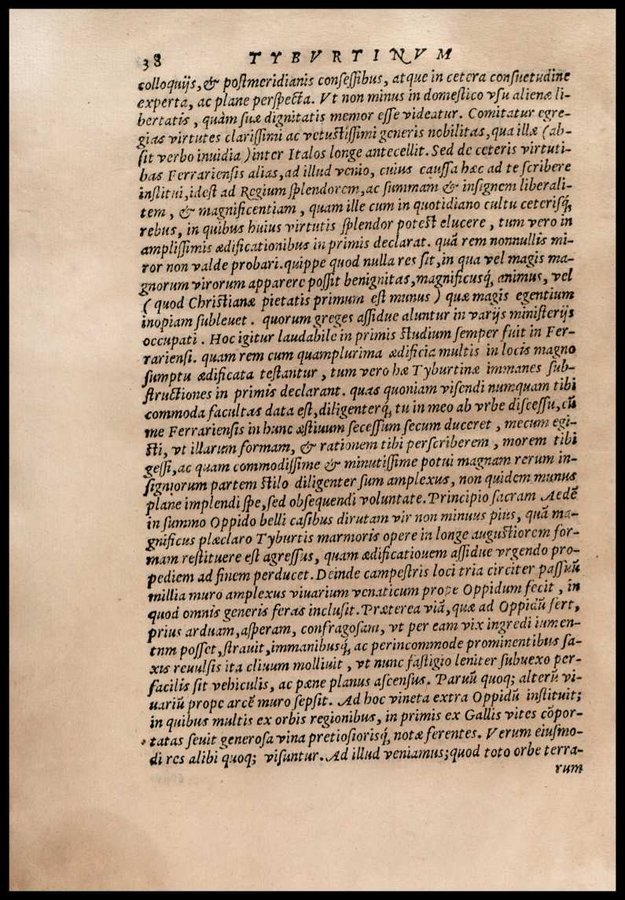 38 TYBVRTINVM
colloquijs, & postmeridianis consessibus, atque in cetera consuetudine
experta, ac plane perspecta. Vt non minus in domestico vsu alienæ li-
bertatis, quàm suæ dignitatis memor esse videatur. Comitatur egre-
gias virtutes clarissimi ac vetustissimi generis nobilitas, qua illæ (ab-
sit verbo inuidia) inter Italos longe antecellit. Sed de ceteris virtuti-
bus Ferrariensis alias, ad illud venio, cuius caussa hæc ad te scribere
institui, idest ad Regium splendorem, ac summam & insignem liberali-
tem, & magnificentiam, quam ille cum in quotidiano cultu ceterisq́,
rebus, in quibus huius virtutis splendor potest elucere, tum vero in
amplissimis ædificationibus in primis declarat. quã rem nonnullis mi-
ror non valde probari. quippe quod nulla res sit, in qua vel magis ma-
gnorum virorum apparere possit benignitas, magnificusq́, animus, vel
(quod Christianæ pietatis primum est munus) quæ magis egentium
inopiam subleuet. quorum greges assidue aluntur in varijs ministerijs
occupati. Hoc igitur laudabile in primis studium semper fuit in Fer-
rariensi. quam rem cum quamplurima ædificia multis in locis magno
sumptu ædificata testantur, tum vero hæ Tyburtinæ immanes sub-
structiones in primis declarant. quas quoniam visendi numquam tibi
commoda facultas data est, diligenterq́, tu in meo ab vrbe discessu, cũ
me Ferrariensis in hunc æstiuum secessum secum duceret, mecum egi-
sti, vt illarum formam, & rationem tibi perscriberem, morem tibi
gessi, ac quam commodissime & minutissime potui magnam rerum in-
signiorum partem stilo diligenter sum amplexus, non quidem munus
plane implendi spe, sed obsequendi voluntate. Principio sacram Aedẽ
in summo Oppido belli casibus dirutam vir non minuus pius, quã ma-
gnificus plæclaro Tyburtis marmoris opere in longe augustiorem for-
mam restituere est agressus, quam ædificationem assidue vrgendo pro-
pediem ad finem perducet. Deinde campestris loci tria circiter passuũ
millia muro amplexus viuarium venaticum prope Oppidum fecit, in
quod omnis generis feras inclusit. Præterea viã, quæ ad Oppidũ fert,
prius arduam, asperam, confragosam, vt per eam vix ingredi iumen-
tnm posset, strauit, immanibusq́, ac perincommode prominentibus sa-
xis reuulsis ita cliuum molliuit, vt nunc fastigio leniter subuexo per-
facilis sit vehiculis, ac pæne planus ascensus. Paruũ quoq; alterũ vi-
uariũ prope arcẽ muro sepsit. Ad hoc vineta extra Oppidũ instituit;
in quibus multis ex orbis regionibus, in primis ex Gallis vites cõpor-
tatas seuit generosa vina pretiosiorisq́, notæ ferentes. Verum eiusmo-
di res alibi quoq; visuntur. Ad illud veniamus; quod toto orbe terra-
rum